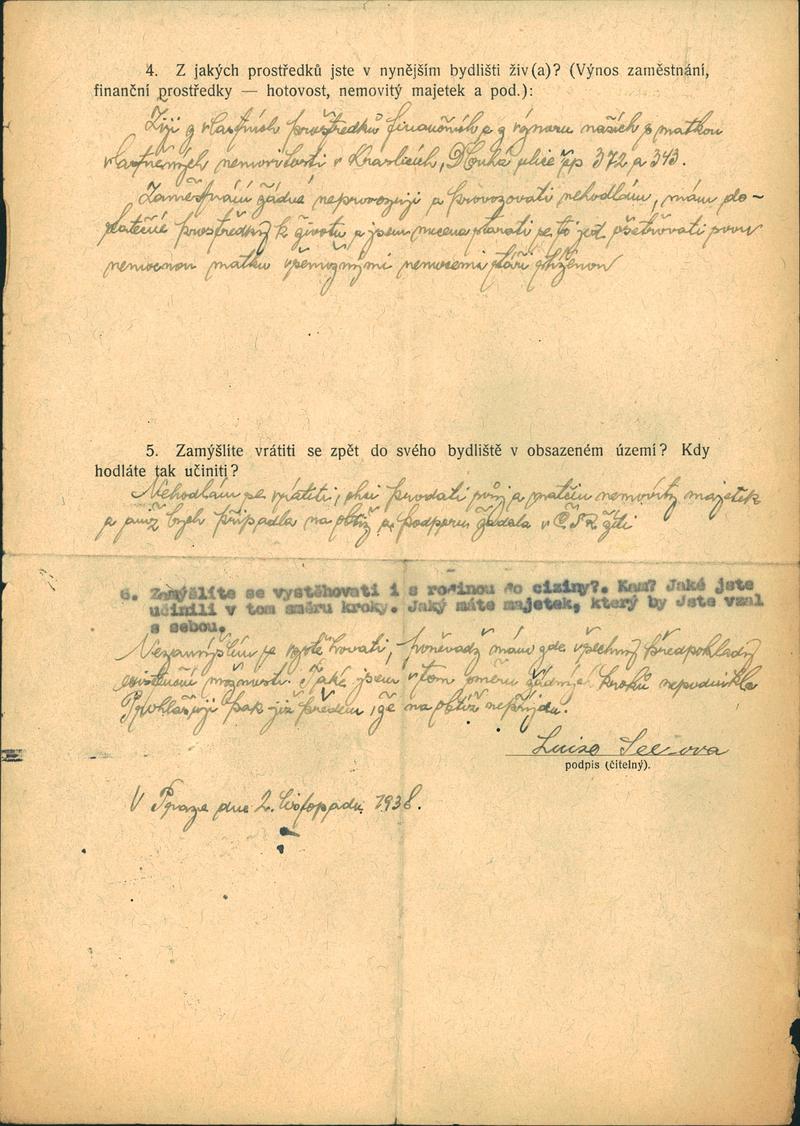 4. Z jakých prostředků jste v nynějším bydlišti živ(a)? (Výnos zaměstnání,
finanční prostředky — hotovost, nemovitý majetek a pod.):
Žiji z vlastních prostředků finančních a z výnosu našich s matkou
vlastněných nemovitostí v Kraslicích, Dlouhá ulice čp 372 a 343.
Zaměstnání žádné neprovozuji a provozovati nehodlám, mám do-
statečné prostředky k životu a jsem nucena starati se, to jest ošetřovati svou
nemocnou matku všemožnými nemocemi stáří stiženou
5. Zamýšlíte vrátiti se zpět do svého bydliště v obsazeném území? Kdy
hodláte tak učiniti?
Nehodlám se vrátiti, chci prodati svůj a matčin nemovitý majetek
a aniž bych připadla na obtíž a podporu žádala v ČSR žíti
6. Zamýšlíte se vystěhovati i s rodinou do ciziny?. Kam? Jaké jste
učinili v tom směru kroky. Jaký máte majetek, který by Jste vzal
s sebou.
Nezamýšlím se vystěhovati, poněvadž mám zde všechny předpoklady
existenční možnosti. Také jsem v tom směru žádných kroků nepodnikla
Prohlašuji pak již předem, že na obtíž nepřijdu.
Luise
podpis (čitelný).
V Praze dne 2. listopadu 1938.